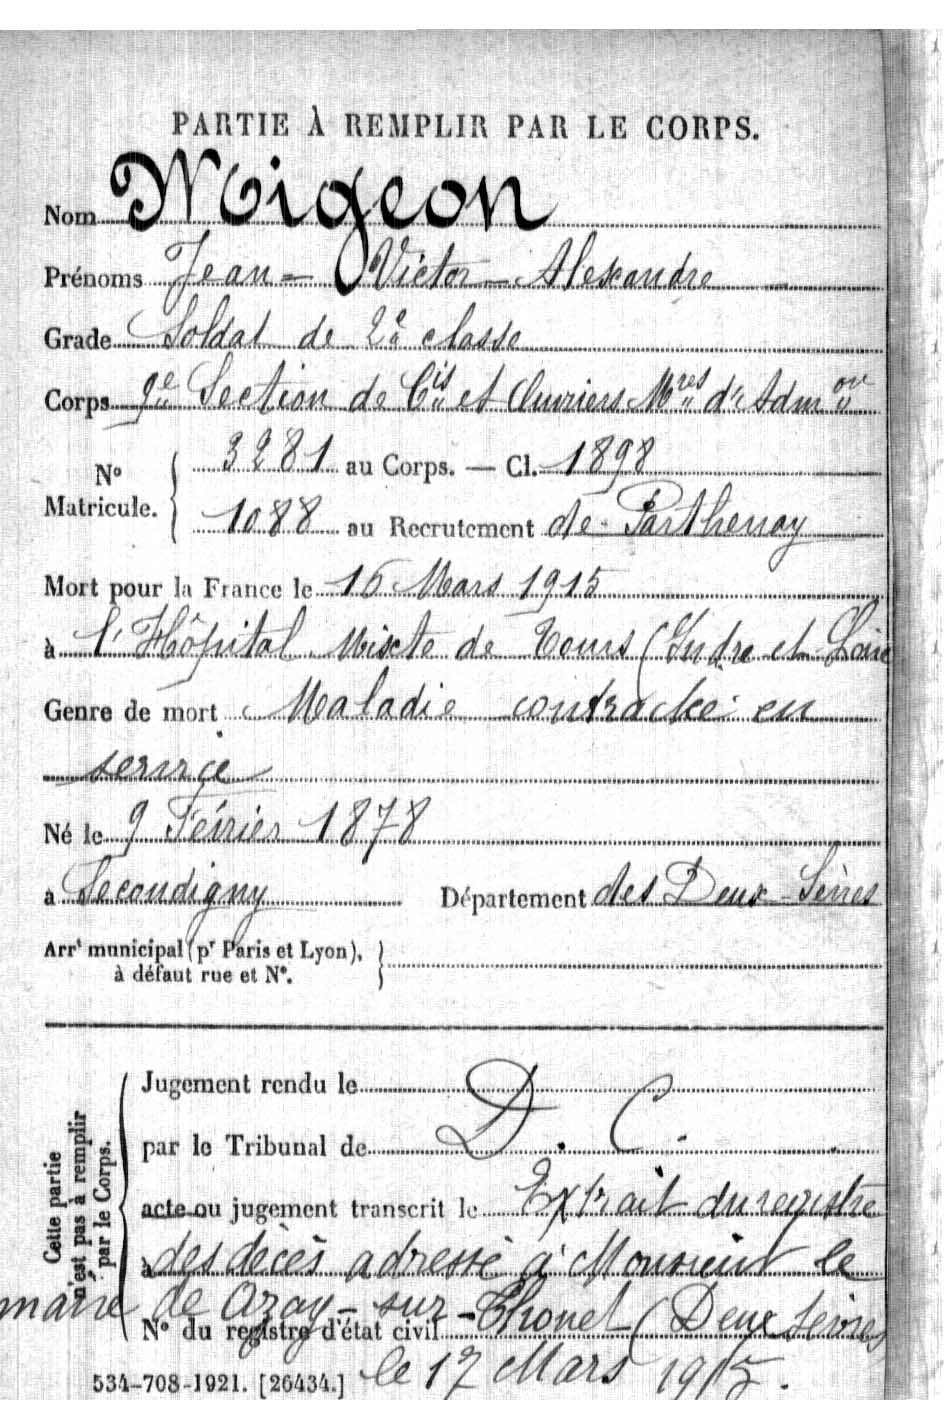 PARTIE À REMPLIR PAR LE CORPS.
Nom Migeon
Prénoms Jean - Victor - Alexandre
Grade Soldat de 2e classe
Corps 9e Section de Cis et Ouvriers Mres d'Admon
No Matricule. 3281 au Corps. — Cl. 1898
1088 au Recrutement de Parthenay
Mort pour la France le 16 Mars 1915
à l'Hôpital Mixte de Tours (Indre et Loire
Genre de mort Maladie contractée en
service
Né le 9 Février 1878
à Secondigny Département des Deux-Sèvres
Arrt municipal (pr Paris et Lyon),
à défaut rue et No.
Cette partie
n'est pas à remplir
par le Corps.
Jugement rendu le D. C.
par le Tribunal de
acte ou jugement transcrit le Extrait du registre
à des décès adressé à Monsieur le
maire de Azay-sur-Thouet (Deux Sèvres)
No du registre d'état civil
le 17 Mars 1915.
534-708-1921. [26434.]